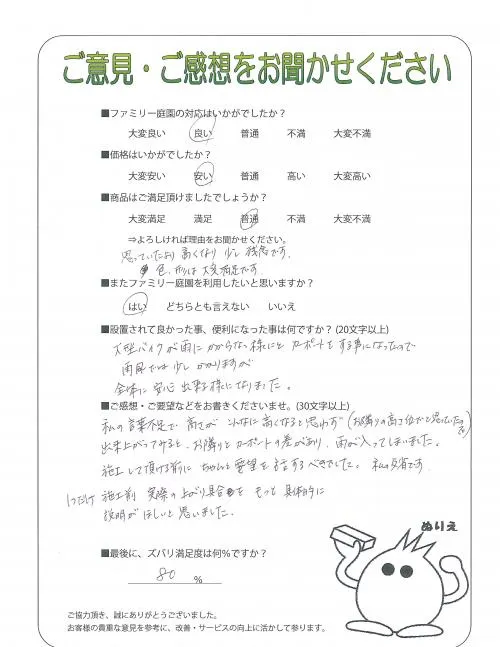 ご意見・ご感想をお聞かせください
■ファミリー庭園の対応はいかがでしたか？
大変良い 良い 普通 不満 大変不満
■価格はいかがでしたか？
大変安い 安い 普通 高い 大変高い
■商品はご満足頂けましたでしょうか？
大変満足 満足 普通 不満 大変不満
⇒よろしければ理由をお聞かせください。
思っていたより高くなり少し残念です。
色、形は大変満足です。
■またファミリー庭園を利用したいと思いますか？
はい どちらとも言えない いいえ
■設置されて良かった事、便利になった事は何ですか？(20文字以上)
大型バイクが雨にかからない様にと カーポートをする事になったので
雨風では少しかかりますが
全体に安心出来る様になりました。
■ご感想・ご要望などをお書きくださいませ。(30文字以上)
私の言葉不足で高さがこんなに高くなると思わず(お隣りの高さ位だと思っていたので)
出来上がってみると、お隣りとカーポートの差があり、雨が入ってしまいました。
施工して頂ける前にちゃんと要望を話するべきでした。私の反省です。
1つだけ 施工前 実際の上がり具合をもっと具体的に
説明がほしいと思いました。
ぬりえ
■最後に、ズバリ満足度は何%ですか？
80 %
ご協力頂き、誠にありがとうございました。
お客様の貴重な意見を参考に、改善・サービスの向上に活かして参ります。